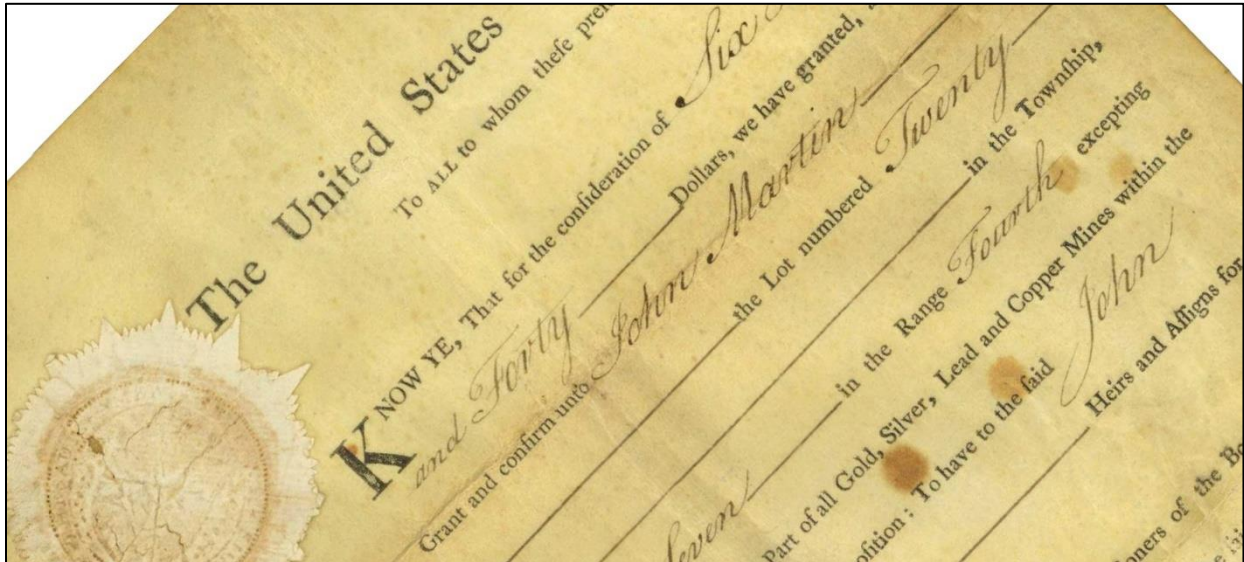 The United States
To ALL to whom theſe
KNOW YE, That for the conſideration of Six
and Forty Dollars, we have granted,
Grant and confirm unto John Martin
the Lot numbered Twenty
in the Townſhip,
Seven in the Range Fourth excepting
Part of all Gold, Silver, Lead and Copper Mines within the
To have to the ſaid John
Heirs and Aſſigns for
of the